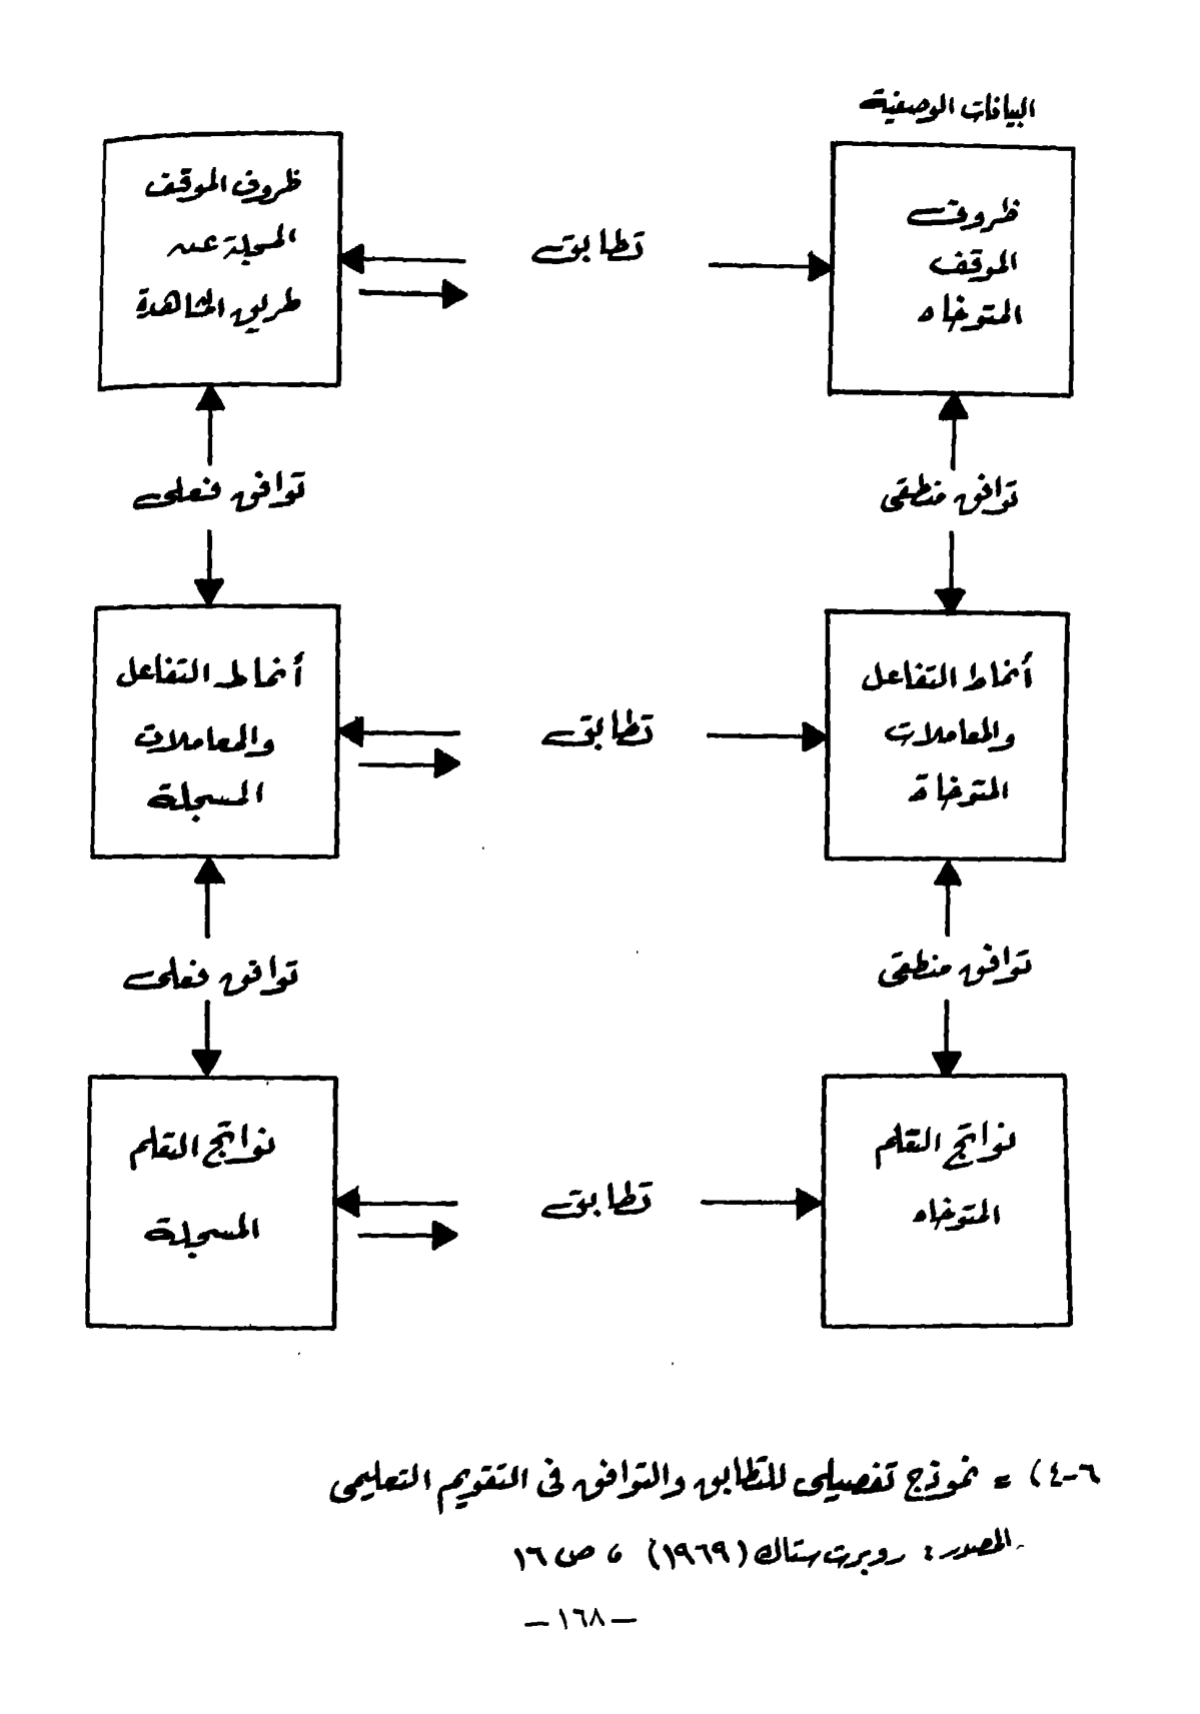 البيانات الوصفية
ظروف
الموقف
المتوخاه
تطابق
ظروف الموقف
المسجلة عن
طريق المشاهدة
توافق منطقى
توافق فعلى
أنماط التفاعل
والمعاملات
المتوخاة
تطابق
أنماط التفاعل
والمعاملات
المسجلة
توافق منطقى
توافق فعلى
نواتج التعلم
المتوخاه
تطابق
نواتج التعلم
المسجلة
٦-٤) = نموذج تفصيلى للتطابق والتوافق فى التقويم التعليمى
المصدر : روبرت ستاك (١٩٦٩) ، ص ١٦
– ١٦٨ –